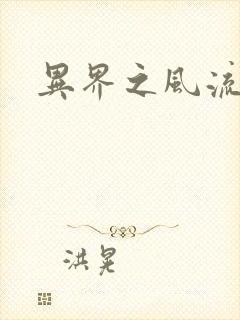 異界之風流
洪晃